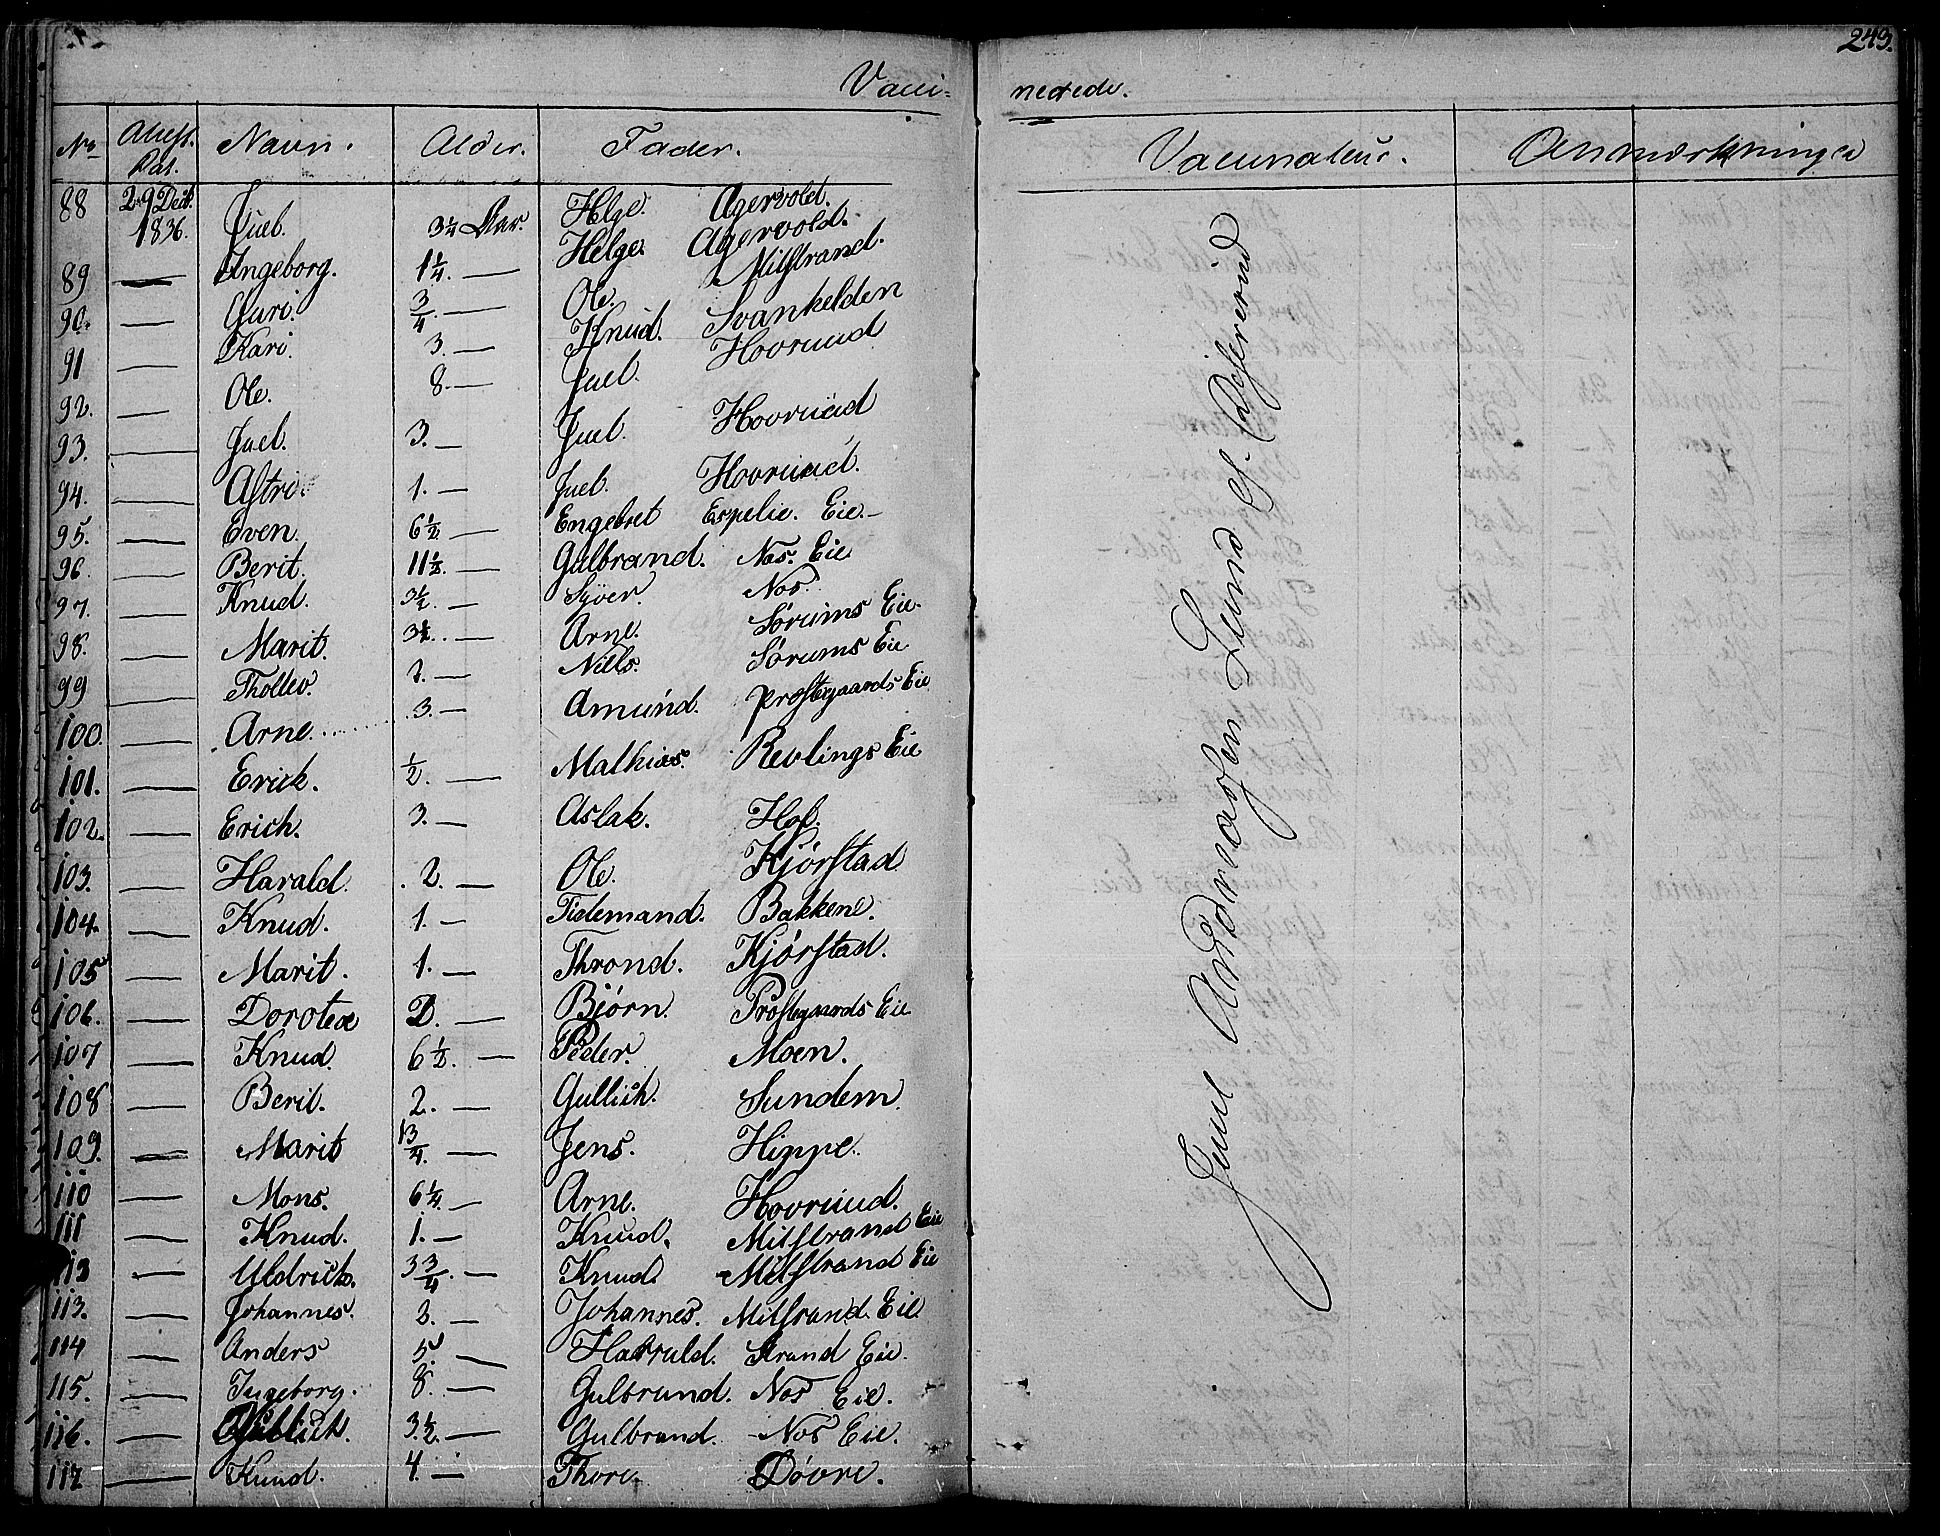 243.
Vacci= nerede.
No Attest. Dat. Navn. Alder. Fader. Vaccinateur. Anmærkninger
88 29 Decb. 1836. Juel. 3¼ Aar. Helge. Agervold.
89 — Ingeborg. 1¼. — Helge. Agervold.
90. — Guri. ¾. — Ole. Milstrand.
91 — Kari. 3. — Knud. Svankelden
92. — Ole. 8. — Juel. Hovruud
93. — Juel. 3. — Juel. Hovruud
94. — Astri 1. — Juel. Hovruud.
95. — Even. 6½ — Engebret Espelie. Eie. —
96. — Berit. 11½. — Gulbrand. Nos. Eie
97. — Knud. 3½. — Syver. Nos.
98. — Marit. 3½. — Arne. Sørums Eie.
99 — Thollev. — Niels. Sørums Eie
100. — Arne. 3. — Amund. Prostegaards Eie
101. — Erick. ½. — Mathias. Revlings Eie
102. — Erich. 3. — Aslak. Hof.
103. — Harald. 2. — Ole. Kjørstad
104. — Knud. 1. — Tidemand. Bakkene.
105 — Marit. 1. — Thrond. Kjørstad.
106. — Dorotea 2. — Bjørn. Prostegaards Eie
107 — Knud. 6½. — Peder. Moen.
108 — Berit. 2. — Gullich. Sundem.
109. — Marit 1¾. — Jens. Hippe.
110 — Mons. 6¼. — Arne. Hovruud.
111 — Knud. 1. — Knud. Milstrand Eie
113 — Uldrich. 3¾. — Knud. Milstrand Eie
113. — Johannes. 3. — Johannes. Milstrand. Eie
114 — Anders 5. — Harald. Strand Eie.
115. — Ingeborg. 8. — Gulbrand. Nos Eie.
116. — Gullich. 3½. — Gulbrand. Nos Eie.
117 — Knud. 4. — Thore. Døvre.
Juul Andreasen Lund S.